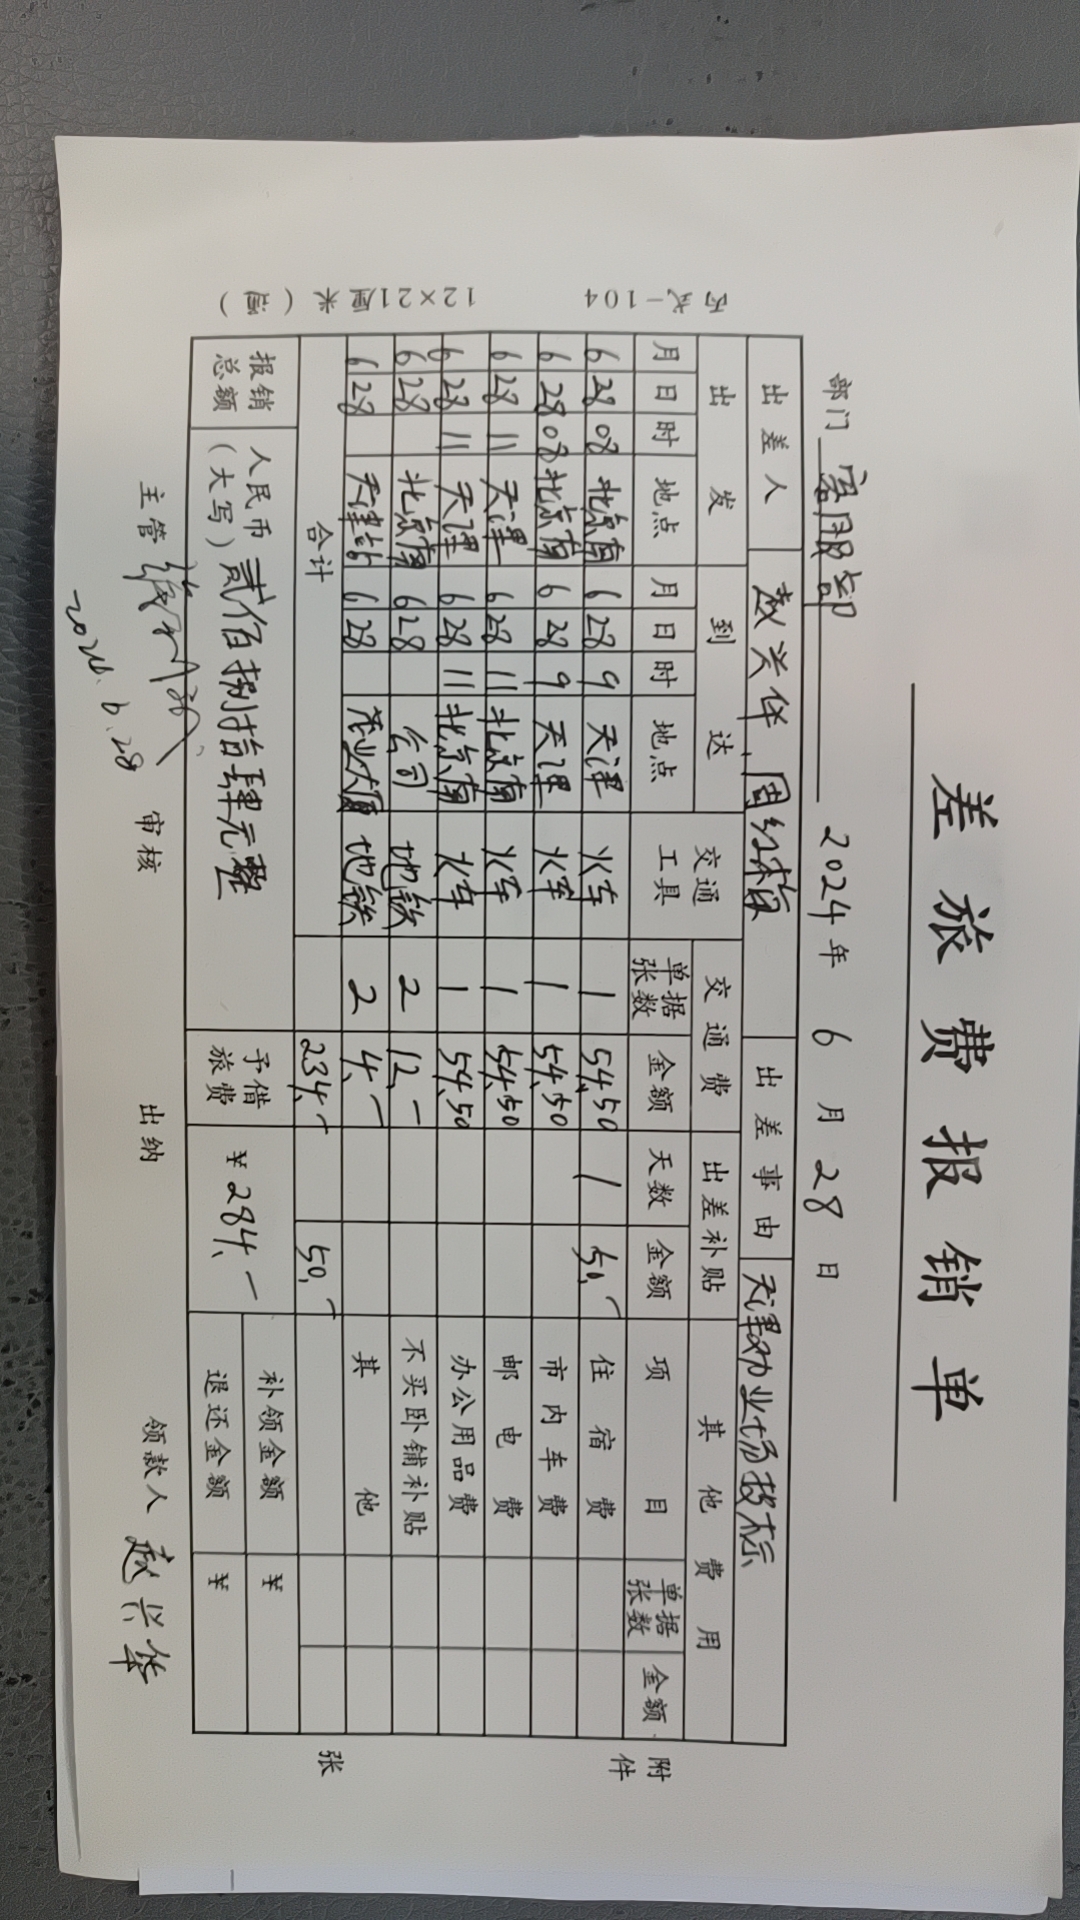 差旅费报销单
部门 客服部 2024年 6月 28日
出差人 赵兴华、周红梅 出差事由 天津劝业场投标
出发 到达 交通工具 交通费 出差补贴 其他费用
月 日 时 地点 月 日 时 地点 单据张数 金额 天数 金额 项目 单据张数 金额
6 28 08 北京南 6 28 9 天津 火车 1 54.50 1 50.- 住宿费
6 28 08 北京南 6 28 9 天津 火车 1 54.50 市内车费
6 28 11 天津 6 28 11 北京南 火车 1 54.50 邮电费
6 28 11 天津 6 28 11 北京南 火车 1 54.50 办公用品费
6 28 北京南 6 28 公司 地铁 2 12.- 不买卧铺补贴
6 28 天津站 6 28 大厦 地铁 2 4.- 其他
合计 234.- 50.-
报销总额 人民币（大写） 贰佰捌拾肆元整 予借旅费 ¥284.- 补领金额 ¥
退还金额 ¥
主管 审核 出纳 领款人 赵兴华
附件 张
丙式-104 12×21厘米（通）